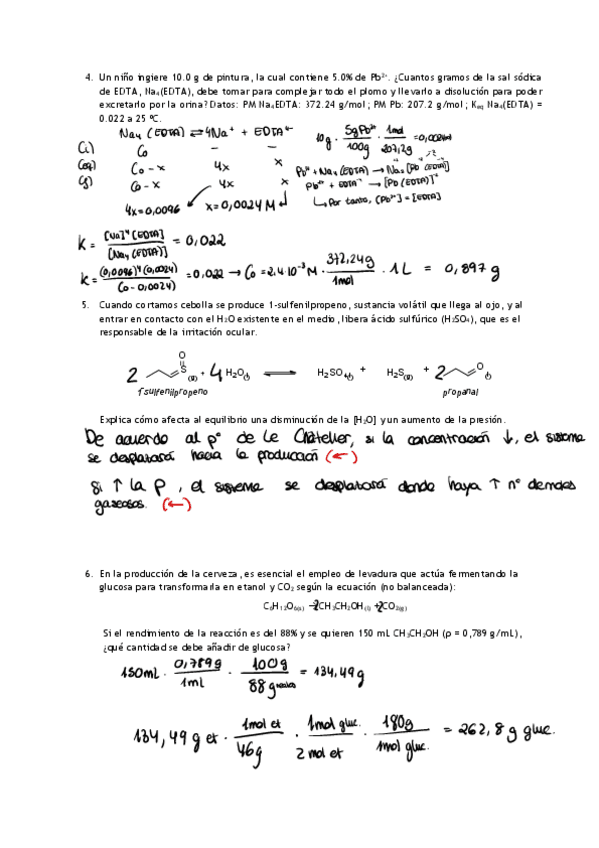 4. Un niño ingiere 10.0 g de pintura, la cual contiene 5.0% de Pb²⁺. ¿Cuantos gramos de la sal sódica
de EDTA, Na₄(EDTA), debe tomar para complejar todo el plomo y llevarlo a disolución para poder
excretarlo por la orina? Datos: PM Na₄EDTA: 372.24 g/mol; PM Pb: 207.2 g/mol; Keq Na₄(EDTA) =
0.022 a 25 ºC.
Na₄ (EDTA) ⇌ 4Na⁺ + EDTA⁴⁻
10g · 5gPb²⁺/100g · 1mol/207,2g = 0,0024M
Ci) Co - -
Ceq) Co-x 4x x
Cf) Co-x 4x x
Pb²⁺ + Na₄ (EDTA) → Na₂ [Pb (EDTA)]
Pb²⁺ + EDTA⁴⁻ → [Pb (EDTA)]²⁻
↳ Por tanto, [Pb²⁺] = [EDTA]
4x = 0,0096 x = 0,0024 M
K = [Na]⁴ [EDTA] / [Na₄ (EDTA)] = 0,022
K = (0,0096)⁴ (0,0024) / (Co - 0,0024) = 0,022 → Co = 2,4·10⁻³ M · 372,24g/1mol · 1 L = 0,897 g
5. Cuando cortamos cebolla se produce 1-sulfenilpropeno, sustancia volátil que llega al ojo, y al
entrar en contacto con el H₂O existente en el medio, libera ácido sulfúrico (H₂SO₄), que es el
responsable de la irritación ocular.
2 S O (g) + 4 H₂O(l) ⇌ H₂SO₄(l) + H₂S(g) + 2 O (l)
1 sulfenilpropeno propanal
Explica cómo afecta al equilibrio una disminución de la [H₂O] y un aumento de la presión.
De acuerdo al pº de Le Châtelier, si la concentración ↓, el sistema
se desplatará hacia la producción (←)
Si ↑ la P, el sistema se desplatará donde haya ↑ nº de moles
gaseosos. (←)
6. En la producción de la cerveza, es esencial el empleo de levadura que actúa fermentando la
glucosa para transformarla en etanol y CO₂ según la ecuación (no balanceada):
C₆H₁₂O₆(s) → 2CH₃CH₂OH(l) + 2CO₂(g)
Si el rendimiento de la reacción es del 88% y se quieren 150 mL CH₃CH₂OH (ρ = 0,789 g/mL),
¿qué cantidad se debe añadir de glucosa?
150mL · 0,789g/1mL · 100g/88g reales = 134,49g
134,49 g et · 1mol et/46g · 1mol gluc./2 mol et · 180g/1mol gluc. = 262,8 g gluc.